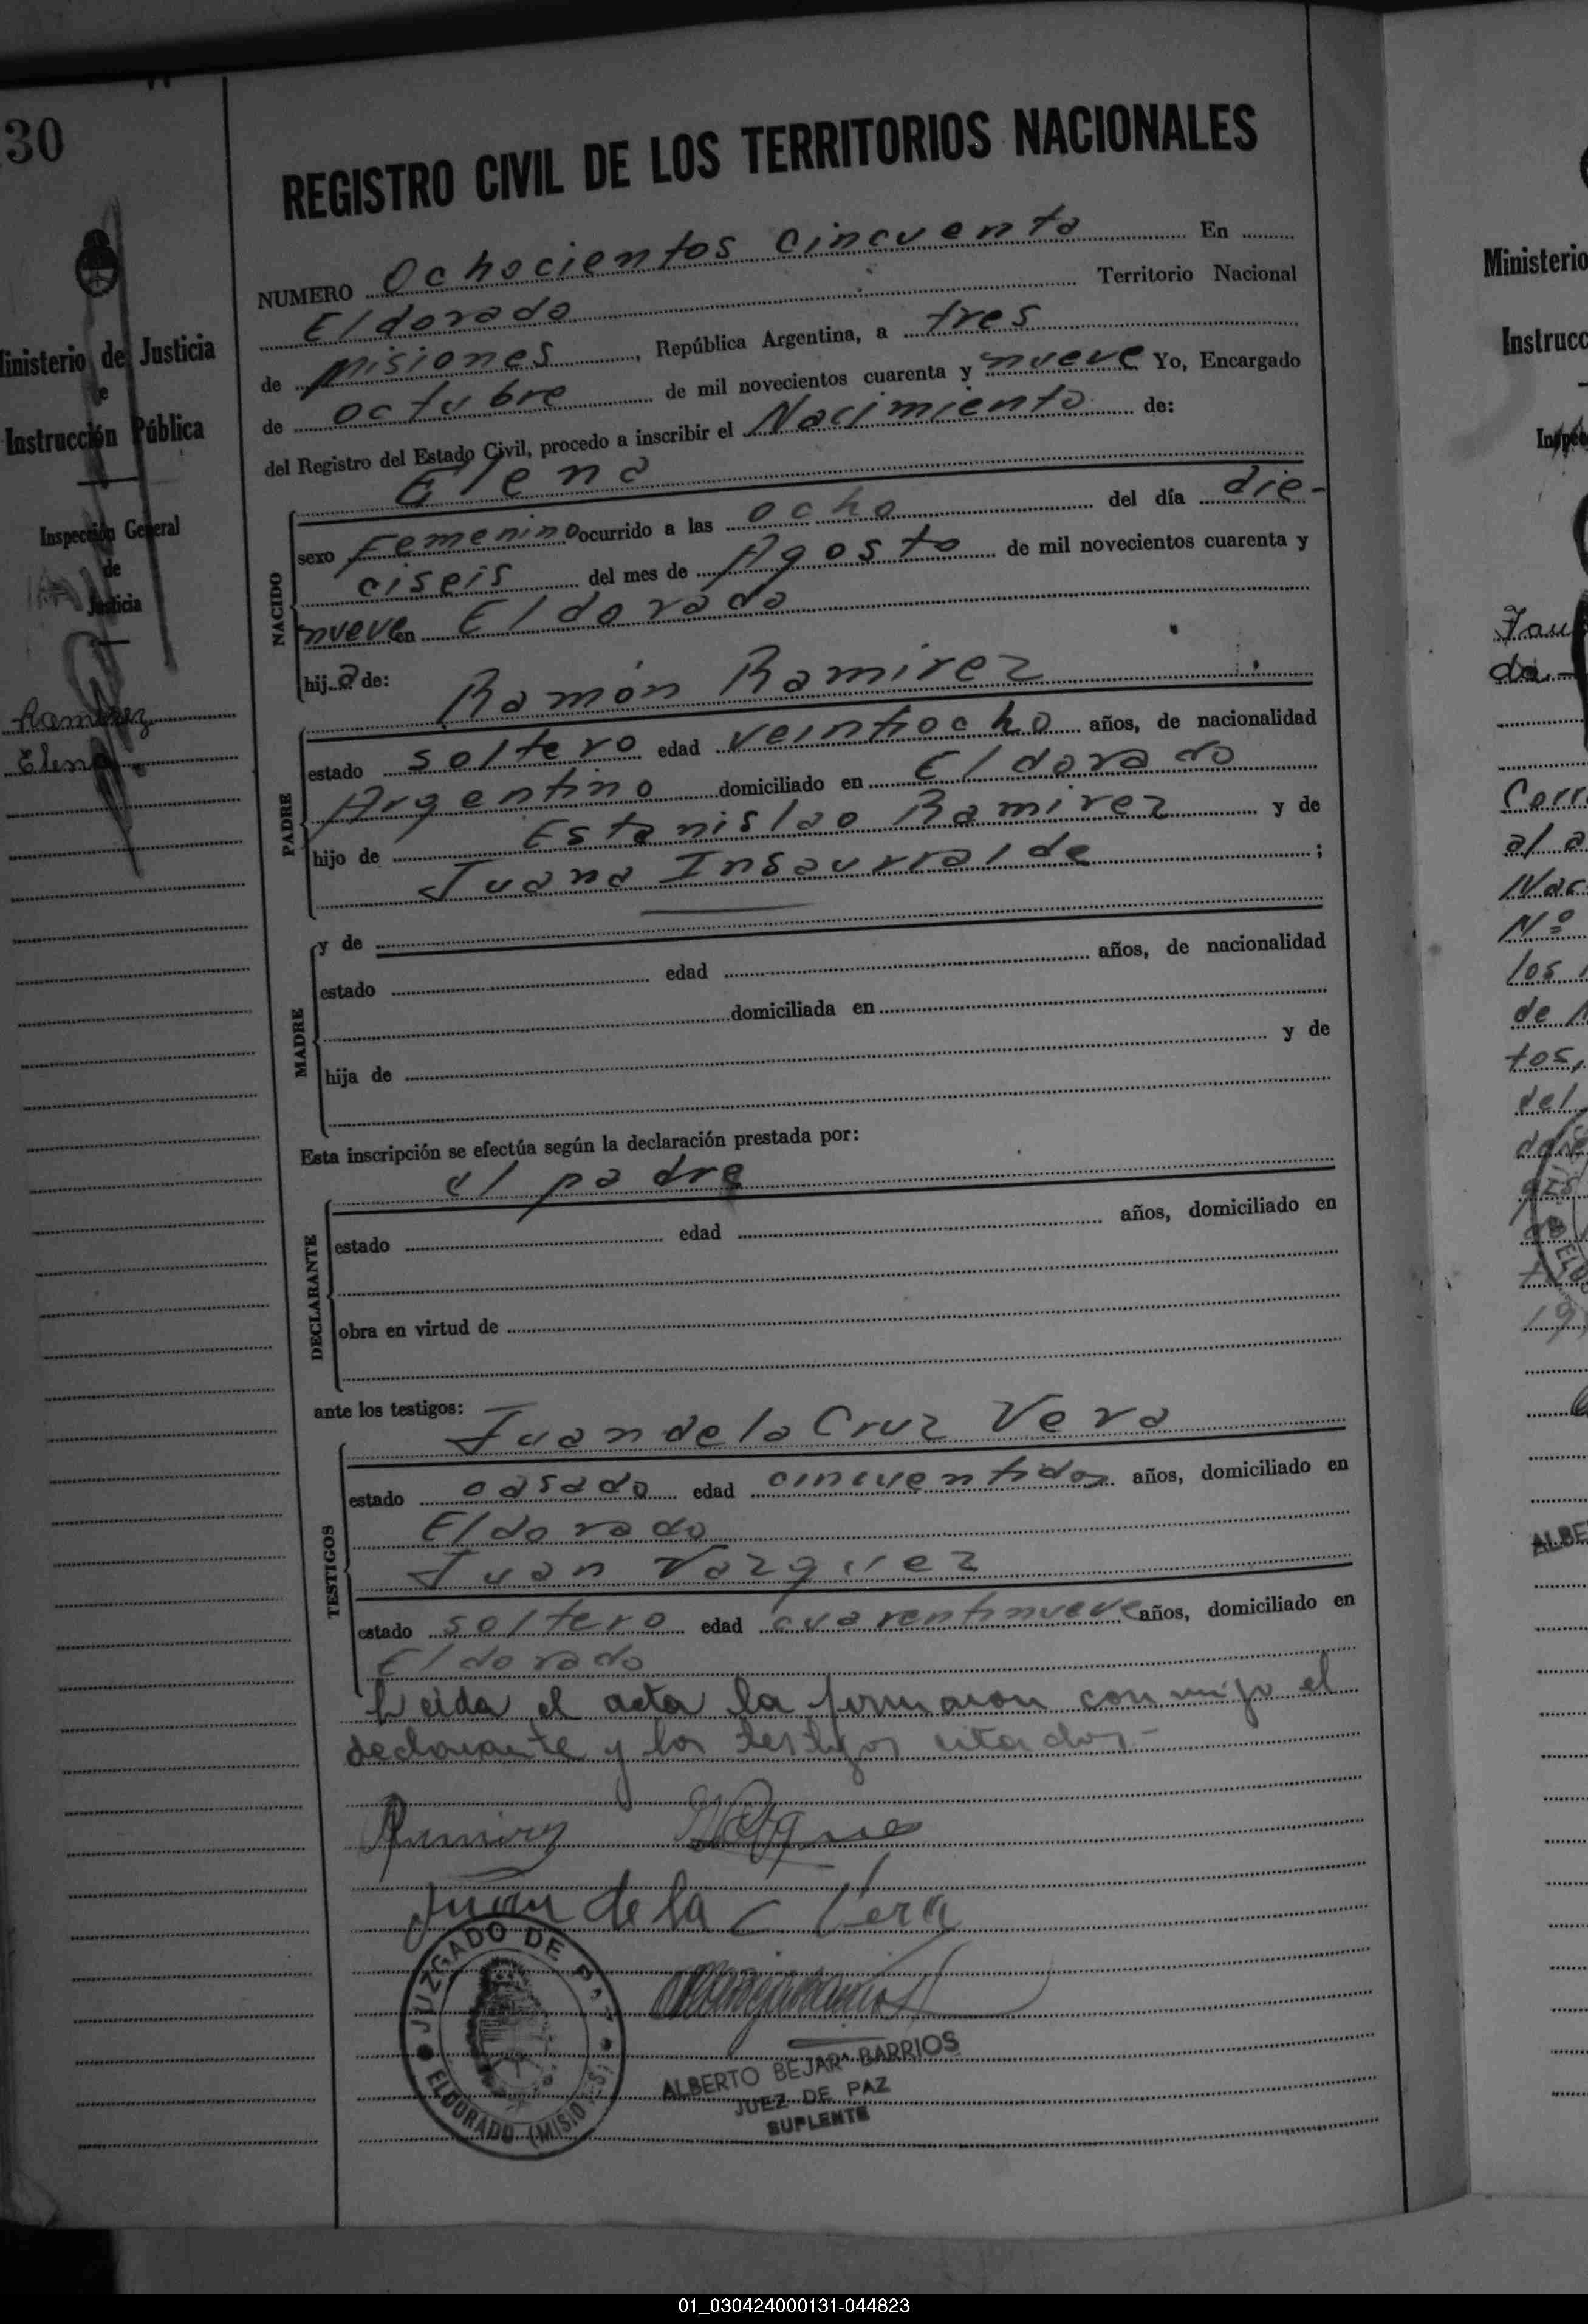 30
Ministerio de Justicia
e
Instrucción Pública
Inspección General
de
Justicia
Ramirez
Elena
REGISTRO CIVIL DE LOS TERRITORIOS NACIONALES
NUMERO Ochocientos cincuenta En
Eldorado Territorio Nacional
de Misiones, República Argentina, a tres
de octubre de mil novecientos cuarenta y nueve Yo, Encargado
del Registro del Estado Civil, procedo a inscribir el Nacimiento de:
Elena
NACIDO
sexo Femenino ocurrido a las ocho del día die-
ciseis del mes de Agosto de mil novecientos cuarenta y
nueve en Eldorado
hija de:
Ramón Ramirez
PADRE
estado soltero edad veintiocho años, de nacionalidad
Argentino domiciliado en Eldorado
hijo de Estanislao Ramirez y de
Juana Insaurralde ;
MADRE
y de
estado edad años, de nacionalidad
domiciliada en
hija de y de
Esta inscripción se efectúa según la declaración prestada por:
el padre
DECLARANTE
estado edad años, domiciliado en
obra en virtud de
ante los testigos:
Juan de la Cruz Vera
TESTIGOS
estado casado edad cincuentidos años, domiciliado en
Eldorado
Juan Vazquez
estado soltero edad cuarentinueve años, domiciliado en
Eldorado
Leida el acta la firmaron conmigo el
declarante y los testigos citados-
Ramirez
Juan de la C Vera
JUZGADO DE P
ELDORADO (MISIO
ALBERTO BEJAR BARRIOS
JUEZ DE PAZ
SUPLENTE
Ministerio
Instrucc
da.-
Corr
al a
Nac
Nº
los
de
tos,
del
ALBE
01_030424000131-044823